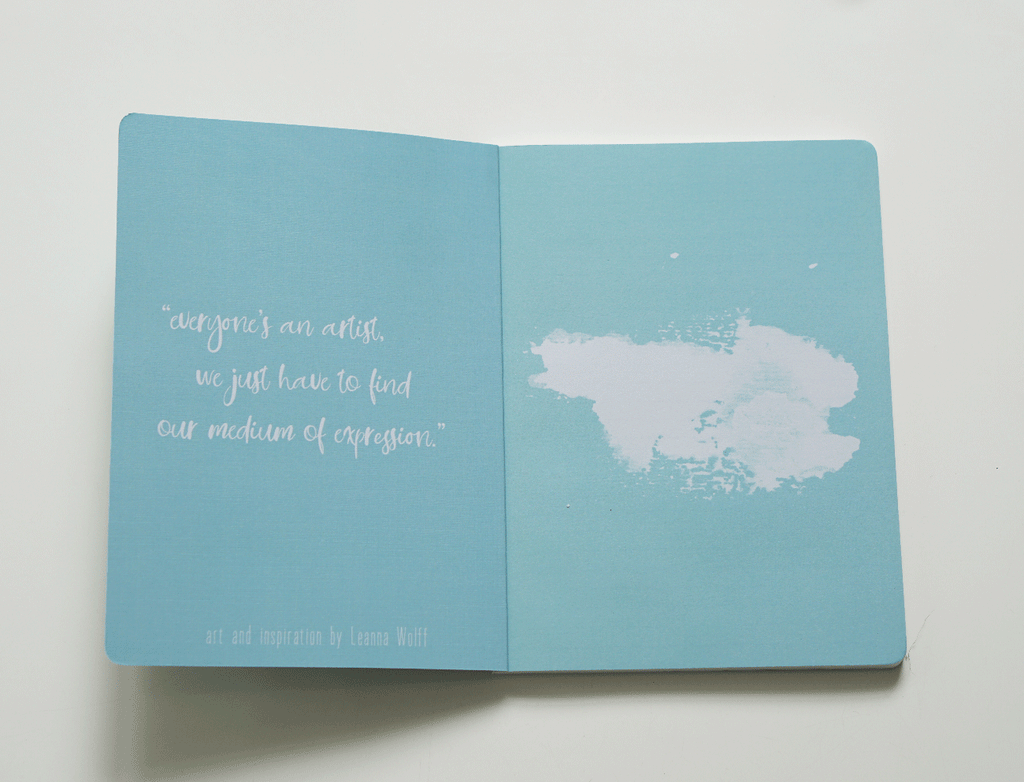 “everyone’s an artist,
we just have to find
our medium of expression.”
art and inspiration by Leanna Wolff